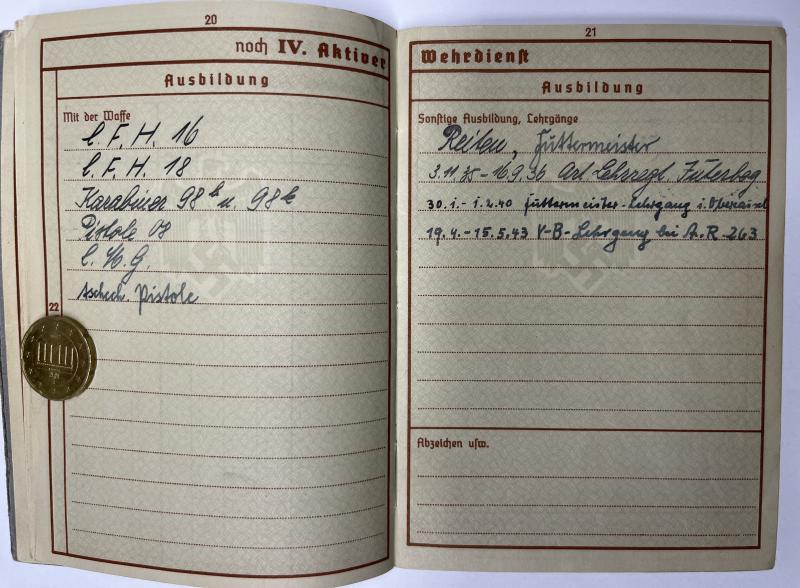 20
noch IV. Aktiver
Ausbildung
Mit der Waffe
l. F. H. 16
l. F. H. 18
Karabiner 98 b u. 98 k
Pistole 08
l. M. G.
tschech. Pistole
22
21
Wehrdienst
Ausbildung
Sonstige Ausbildung, Lehrgänge
Reiten, Futtermeister
3.11.35-16.9.36 Art. Lehrregt. Jüterbog
30.1.-1.2.40 Futtermeister-Lehrgang i.
19.4.-15.5.43 V-B-Lehrgang bei A.R. 263
Abzeichen usw.